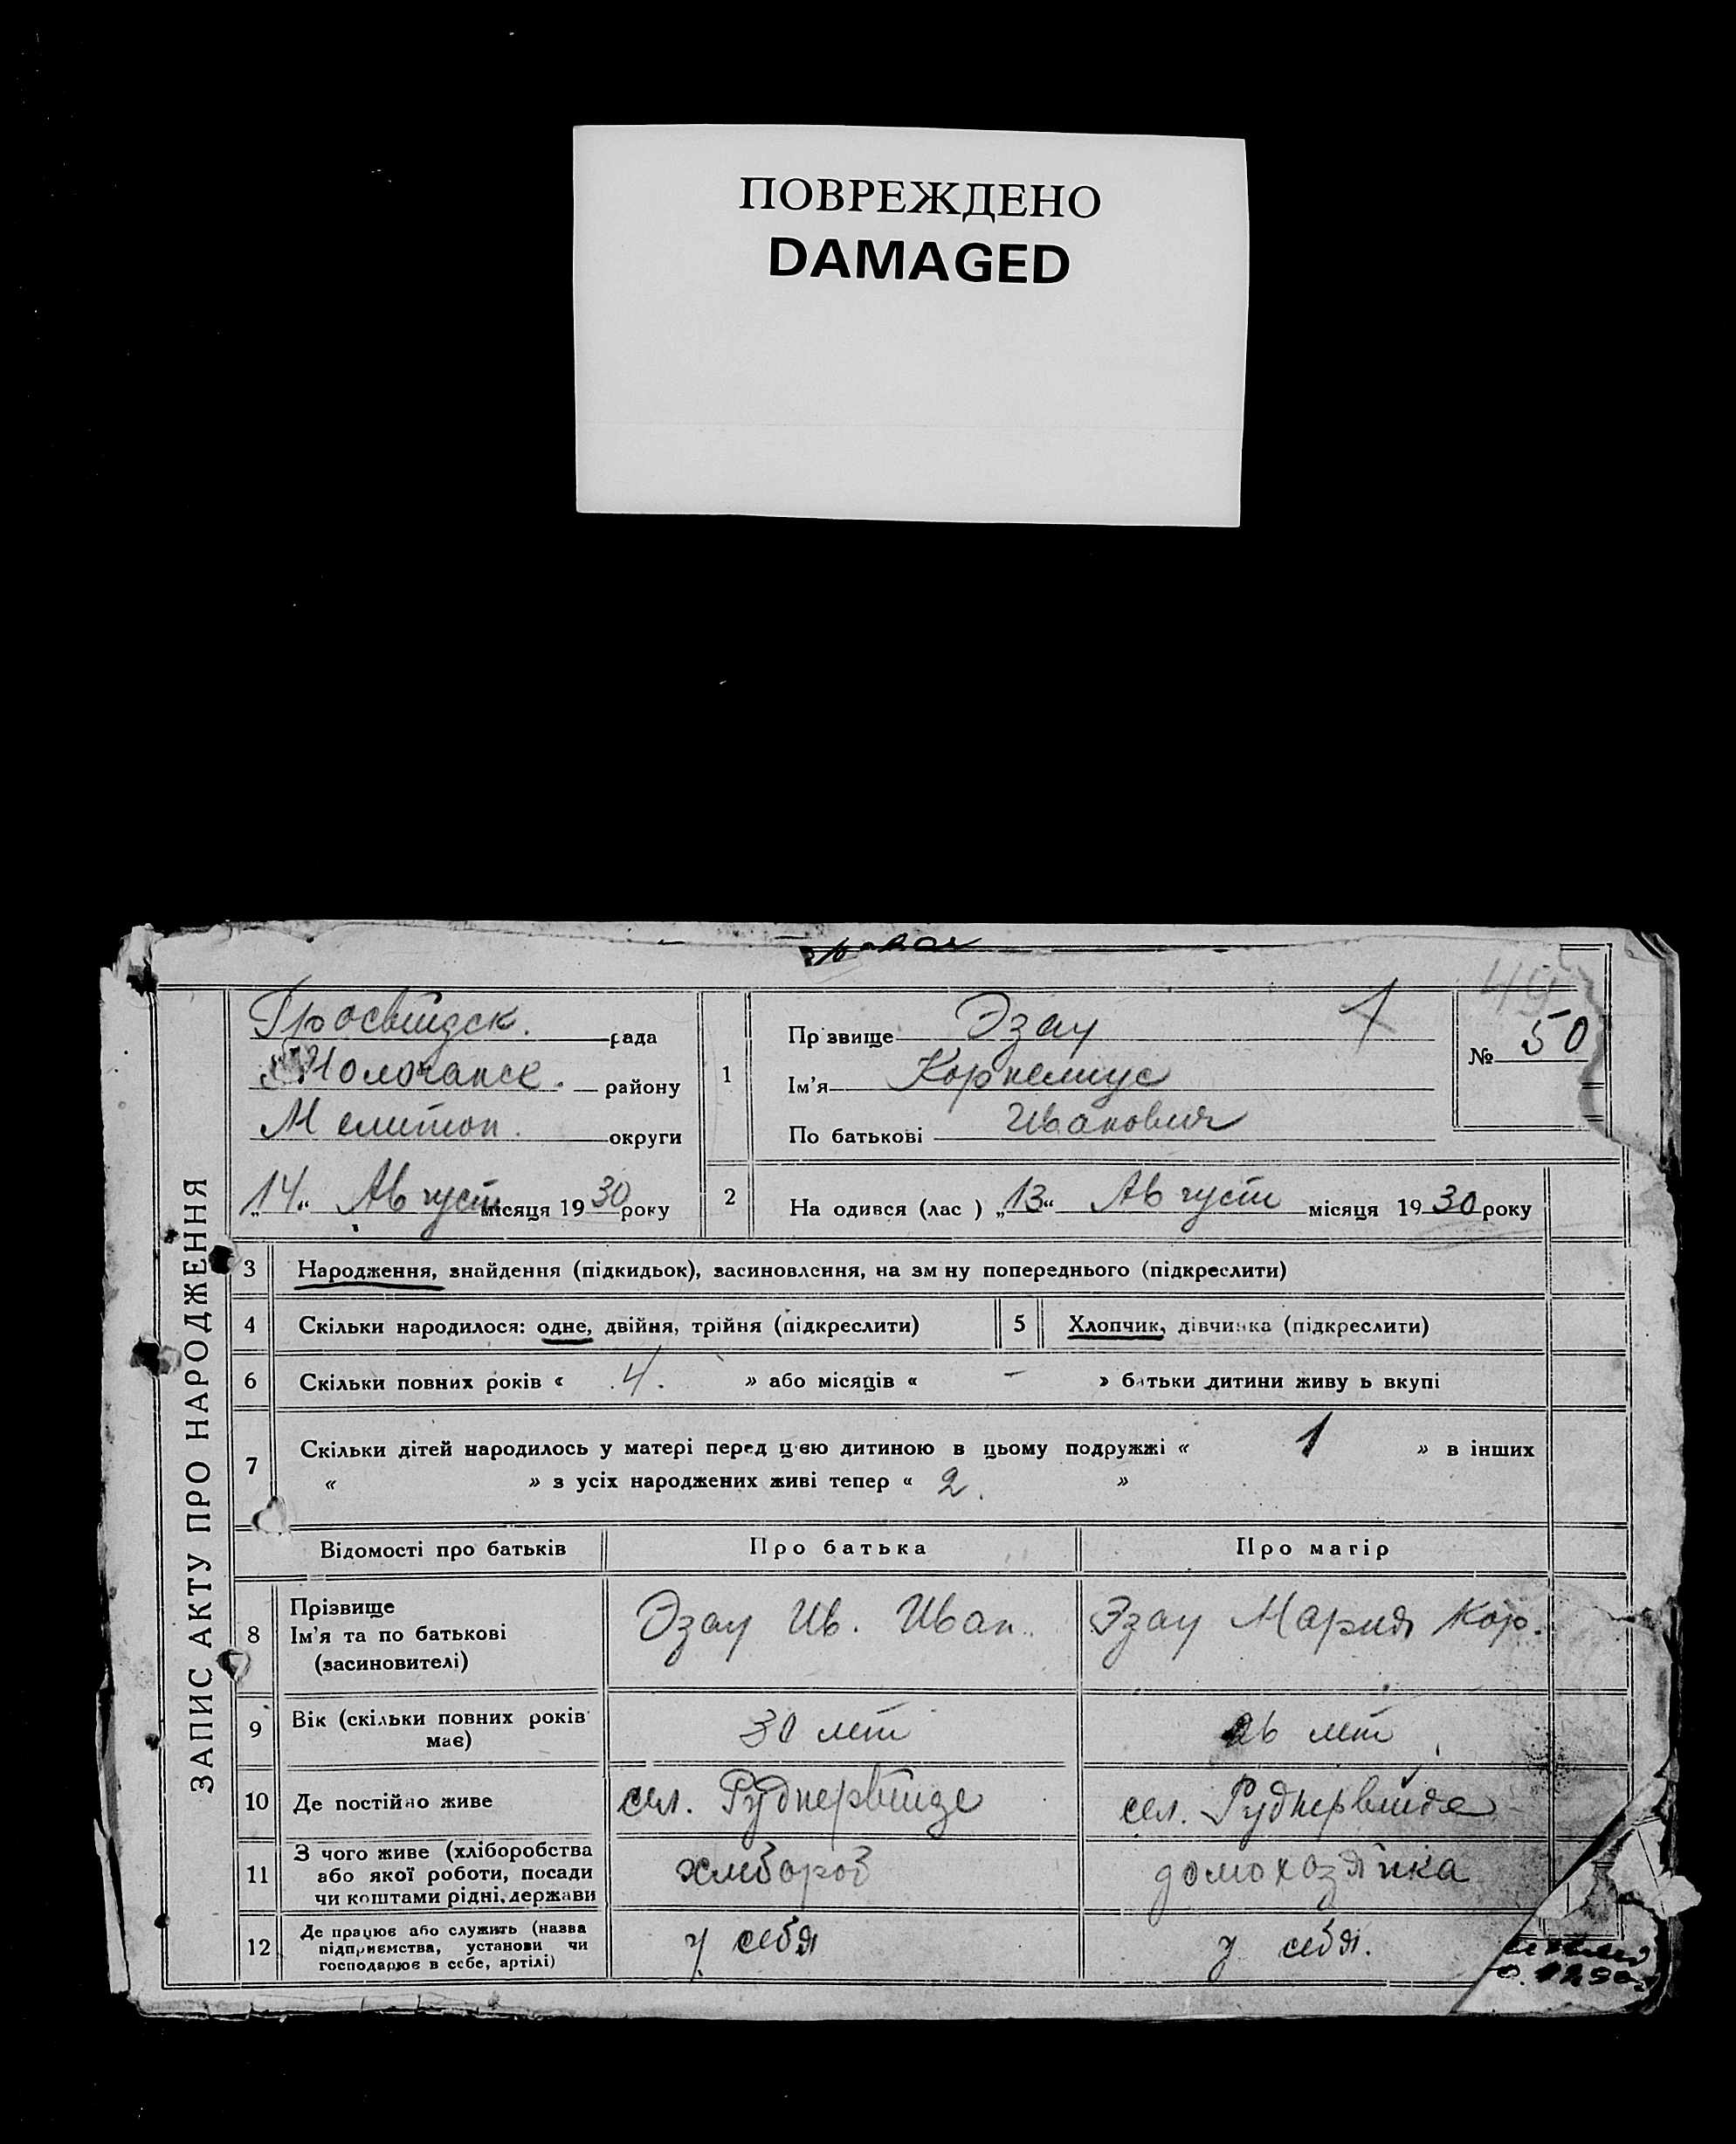 ПОВРЕЖДЕНО
DAMAGED
ЗАПИС АКТУ ПРО НАРОДЖЕННЯ
49
№ 50
Гросвейдск. рада
Молочанск. району
Мелитоп. округи
„14“ Август місяця 1930 року
1 Пр звище Эзау
Ім'я Корнелиус
По батькові Иванович
2 На одився (лас ) „13“ Август місяця 1930 року
3 Народження, знайдення (підкидьок), засиновлення, на зм ну попереднього (підкреслити)
4 Скільки народилося: одне, двійня, трійня (підкреслити) 5 Хлопчик, дівчинка (підкреслити)
6 Скільки повних років « 4. » або місяців « – » батьки дитини живу ь вкупі
7 Скільки дітей народилось у матері перед цією дитиною в цьому подружжі « 1 » в інших
« » з усіх народжених живі тепер « 2. »
Відомості про батьків Про батька Про матір
8 Прізвище
Ім'я та по батькові
(засиновителі)
Эзау Ив. Иван. Эзау Мария Кор.
9 Вік (скільки повних років
має)
30 лет 26 лет
10 Де постійно живе сел. Руднервейде сел. Руднервейде
11 З чого живе (хліборобства
або якої роботи, посади
чи коштами рідні, держави
хлебороб домохозяйка
12 Де працює або служить (назва
підприємства, установи чи
господарює в себе, артілі)
у себя у себя.